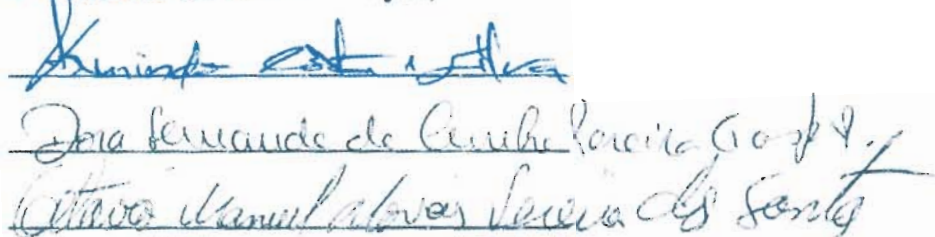 Armindo Costa e Silva
Dora Fernanda da Cunha Pereira
Otávio Manuel Pereira dos Santos